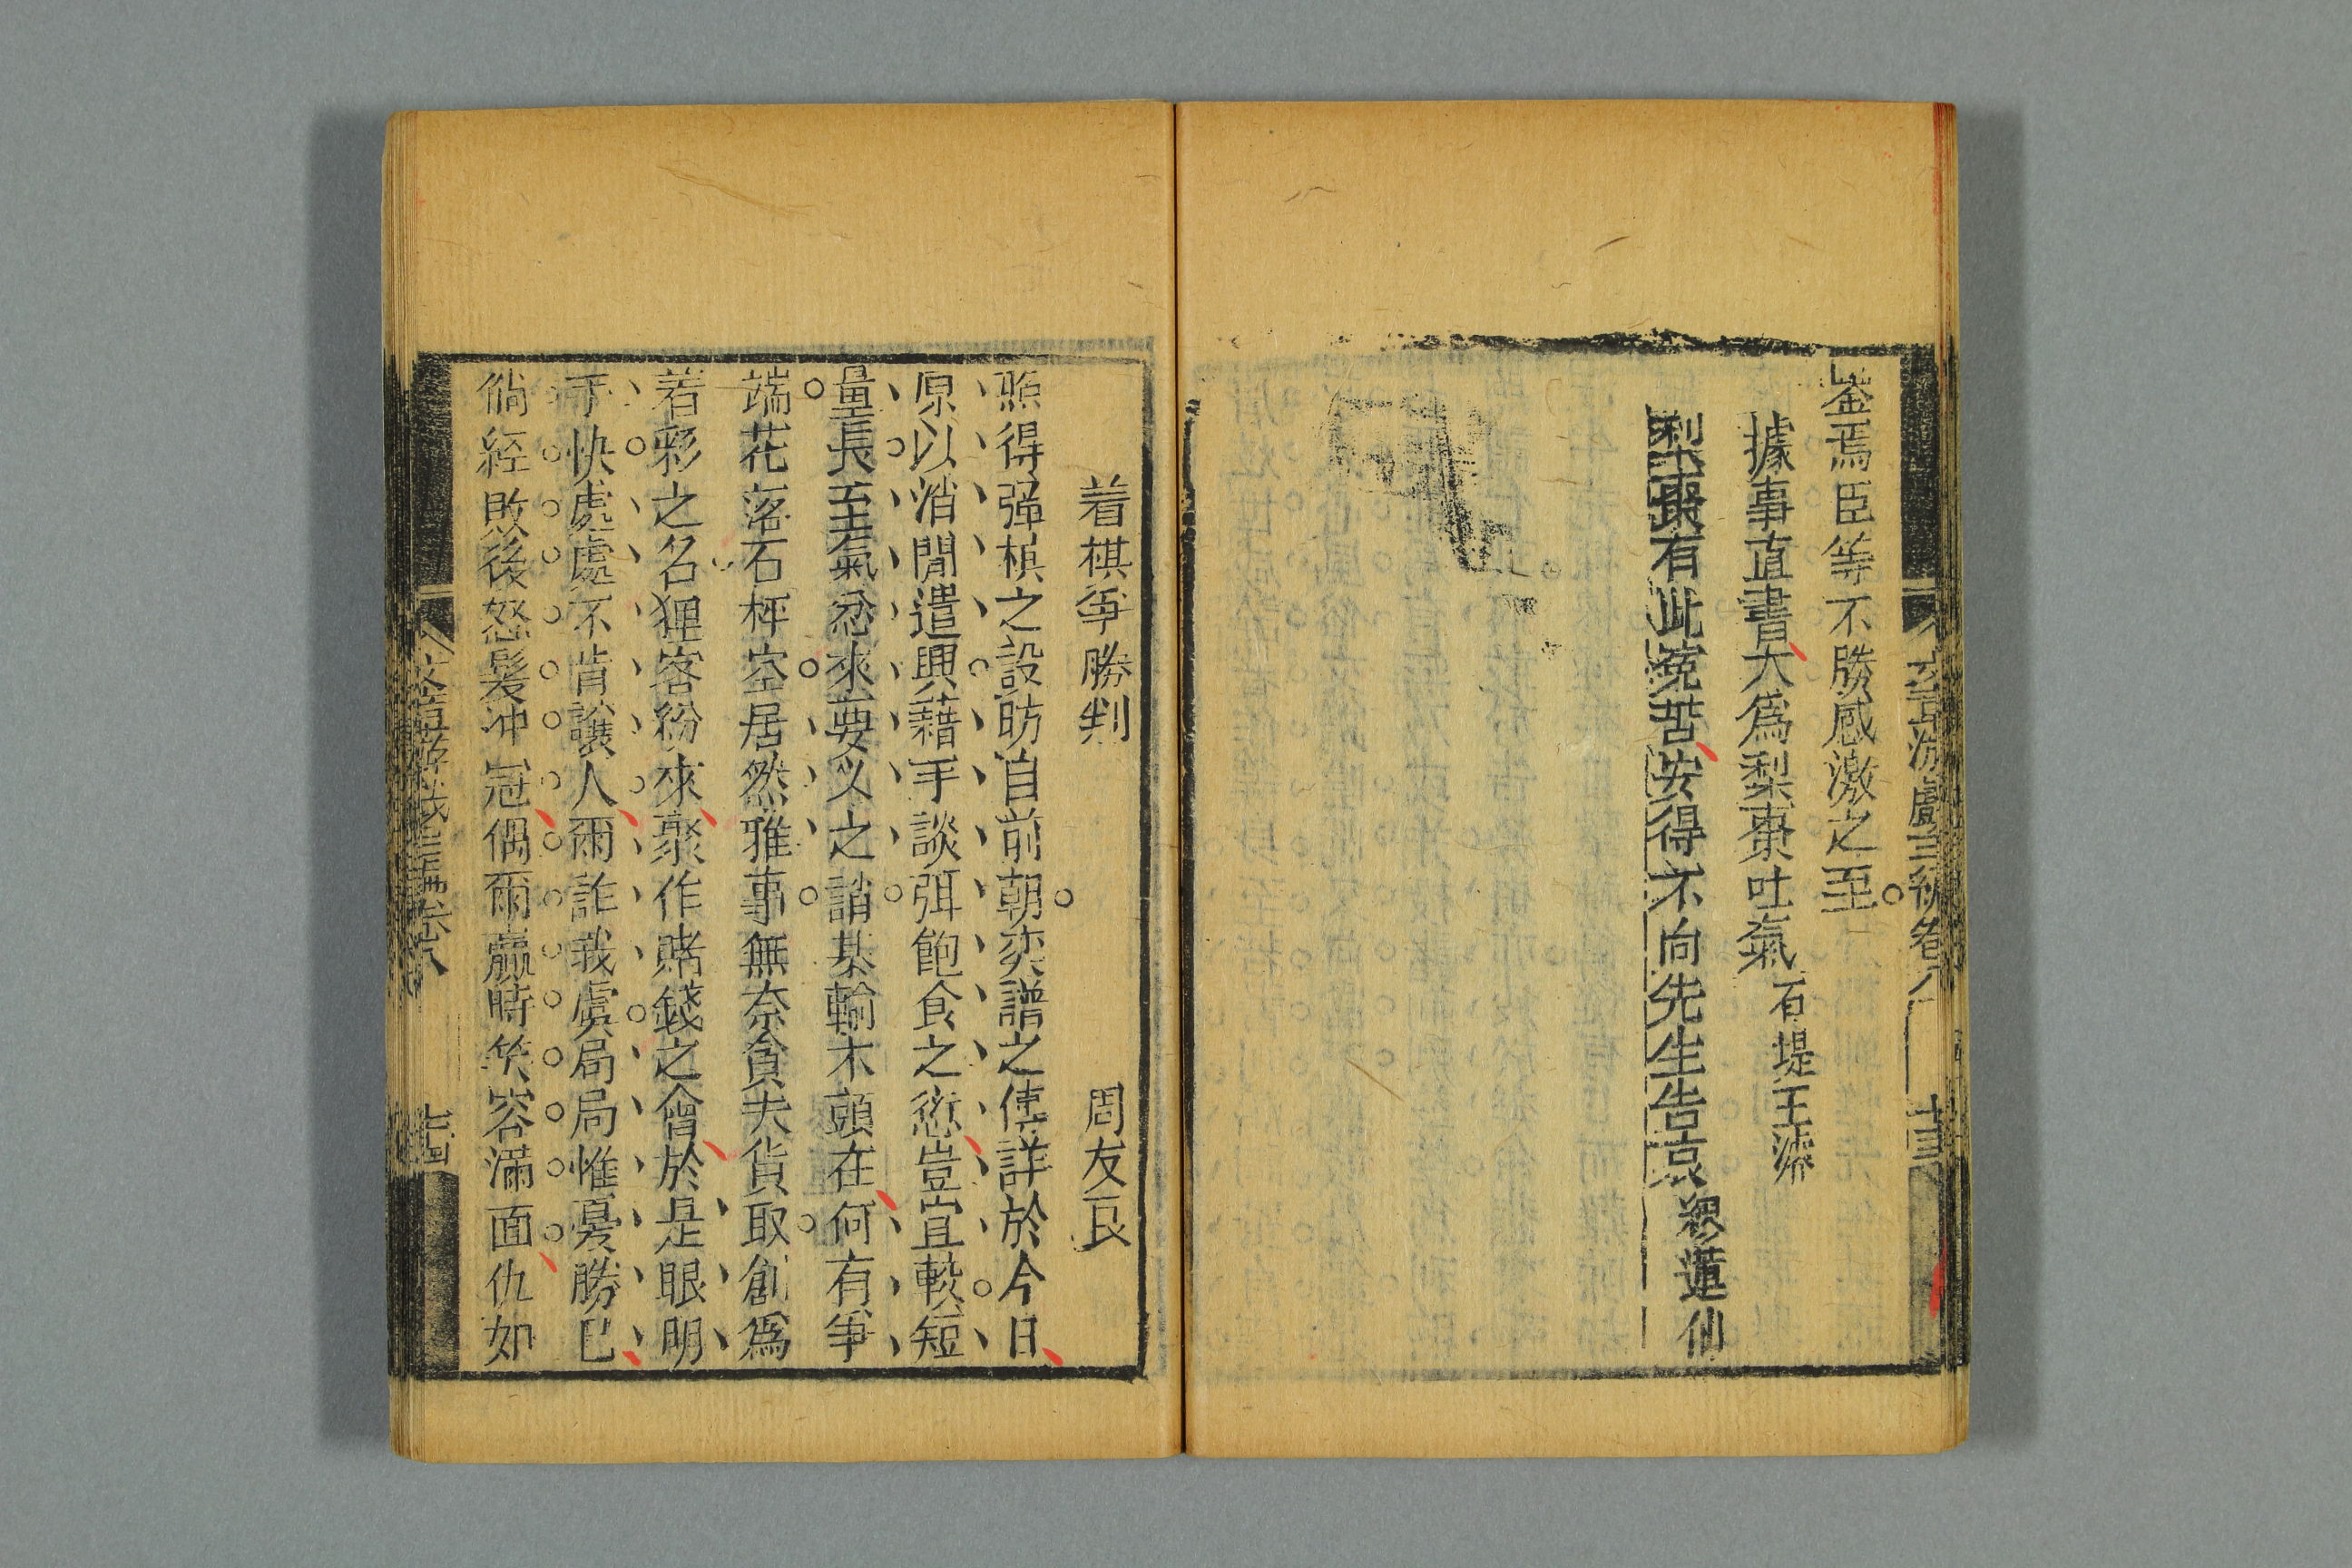 文章游戲三編卷八
十三
鉴焉臣等不勝感激之至
據事直書大爲梨棗吐氣 石堤王濟
梨棗有此寃苦安得不向先生告哀 繆蓮仙
着棋爭勝判
周友良
照得强棋之設昉自前朝奕譜之傳詳於今日
原以消閒遣興藉手談弭飽食之愆豈宜較短
量長至氣忿來要乂之誚基輸木頭在何有爭
端花落石枰空居然雅事無奈貪夫貨取創爲
着彩之名狎客紛來聚作賭錢之會於是眼明
手快處處不肯讓人爾詐我虞局局惟憂勝已
倘經敗後怒髮冲冠偶爾贏時笑容滿面仇如
文章游戲三編卷八
十四